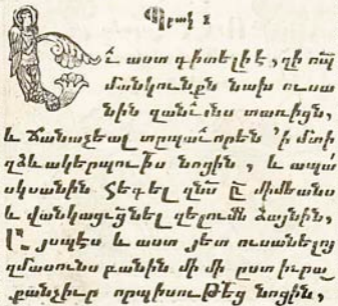 Պրակ
աստ գիտելիէ, զի որպ̃
մանկունքն նախ ուսա
նին զանխնս տառիցն,
և ճանաչեալ որպաւորեն ՚ի մտի
զձևակերպութիս նոցին, և ապա՛
սկսանին հեգել զնս ընդ միմեանս
և վանկացուցնել զելումն ձայնին,
յսպես և աստ յետ ուսանելոյ
զմասունս բանին մի մի ըստ իւրա
քանչիւր որպիսութեց նոցին,